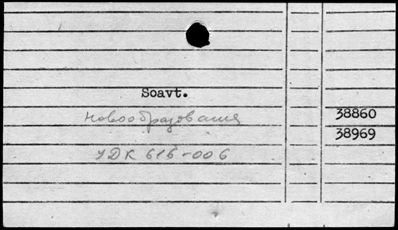 Soavt.
Новообразования
38860
38969
УДК 616-006